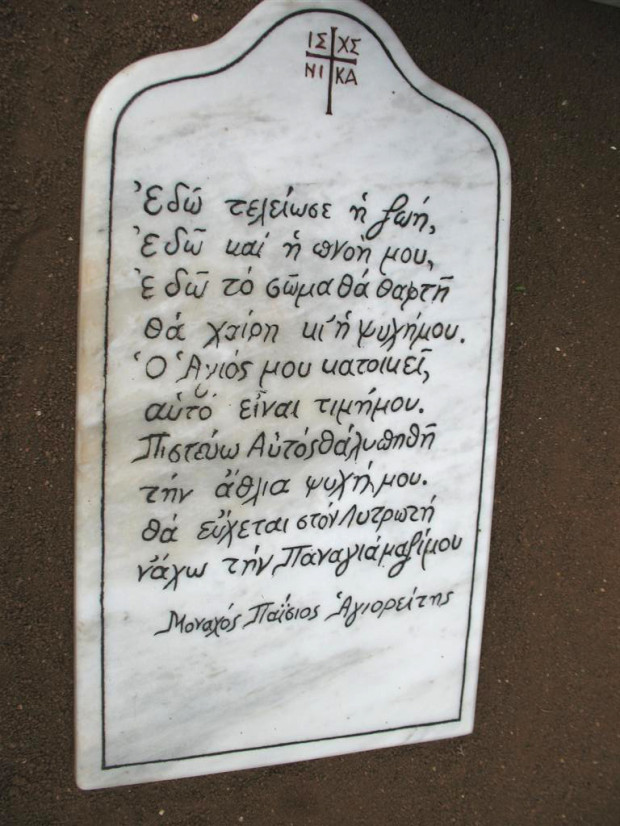 ΙΣ ΧΣ
ΝΙ ΚΑ
Ἐδῶ τελείωσε ἡ ζωή,
Ἐδῶ καί ἡ πνοή μου,
Ἐδῶ τό σῶμα θά θαφτῆ
θά χαίρη κι' ἡ ψυχή μου.
Ὁ Ἅγιός μου κατοικεῖ,
αὐτό εἶναι τιμή μου.
Πιστεύω Αὐτός θά λυπηθῆ
τήν ἄθλια ψυχή μου.
θά εὔχεται στόν Λυτρωτή
νἄχω τήν Παναγιά μαζί μου
Μοναχός Παΐσιος Ἁγιορείτης